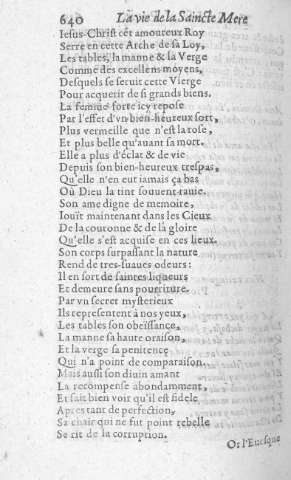 640 La vie de la Saincte Mere
Iesus-Christ cét amoureux Roy
Serre en cette Arche de sa Loy,
Les tables, la manne & la Verge
Comme des excellens moyens,
Desquels se seruit cette Vierge
Pour acquerir de si grands biens.
La femme forte icy repose
Par l'effet d'vn bien-heureux sort,
Plus vermeille que n'est la rose,
Et plus belle qu'auant sa mort.
Elle a plus d'éclat & de vie
Depuis son bien-heureux trespas,
Qu'elle n'en eut iamais ça bas
Où Dieu la tint souuent rauie.
Son ame digne de memoire,
Iouït maintenant dans les Cieux
De la couronne & de la gloire
Qu'elle s'est acquise en ces lieux.
Son corps surpassant la nature
Rend de tres-suaues odeurs:
Il en sort de saintes liqueurs
Et demeure sans pouriture.
Par vn secret mysterieux
Ils representent à nos yeux,
Les tables son obeissance,
La manne sa haute oraison,
Et la verge sa penitence
Qui n'a point de comparaison.
Mais aussi son diuin amant
La recompense abondamment,
Et fait bien voir qu'il est fidele
Apres tant de perfection,
Sa chair qui ne fut point rebelle
Se rit de la corruption.
Or l'Euesque